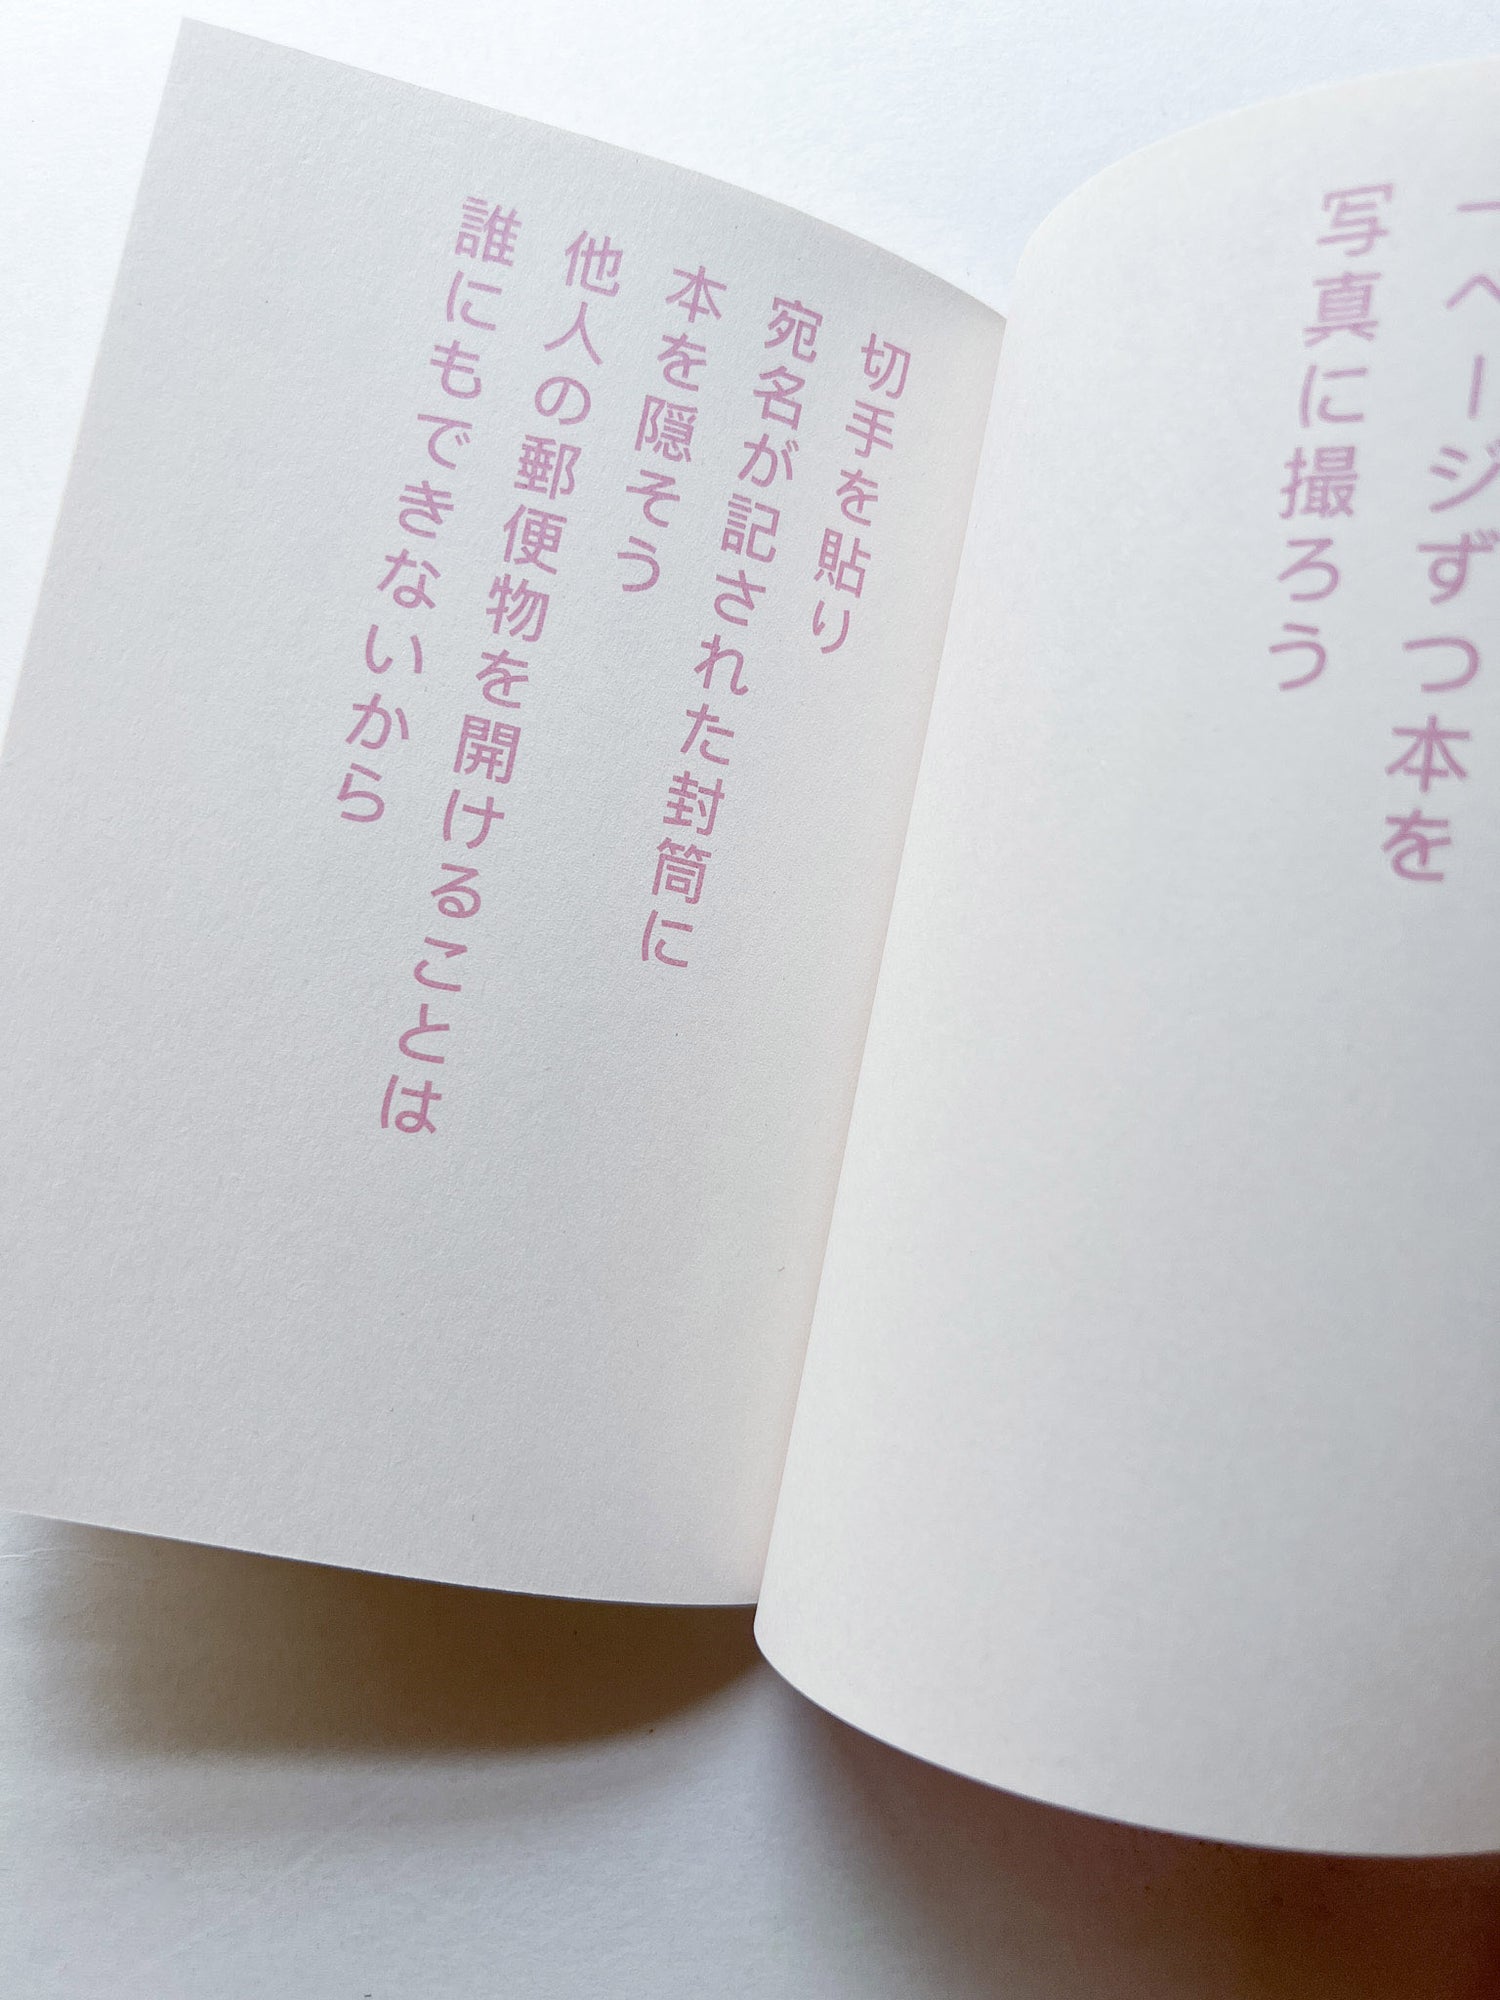 一ページずつ本を
写真に撮ろう
切手を貼り
宛名が記された封筒に
本を隠そう
他人の郵便物を開けることは
誰にもできないから